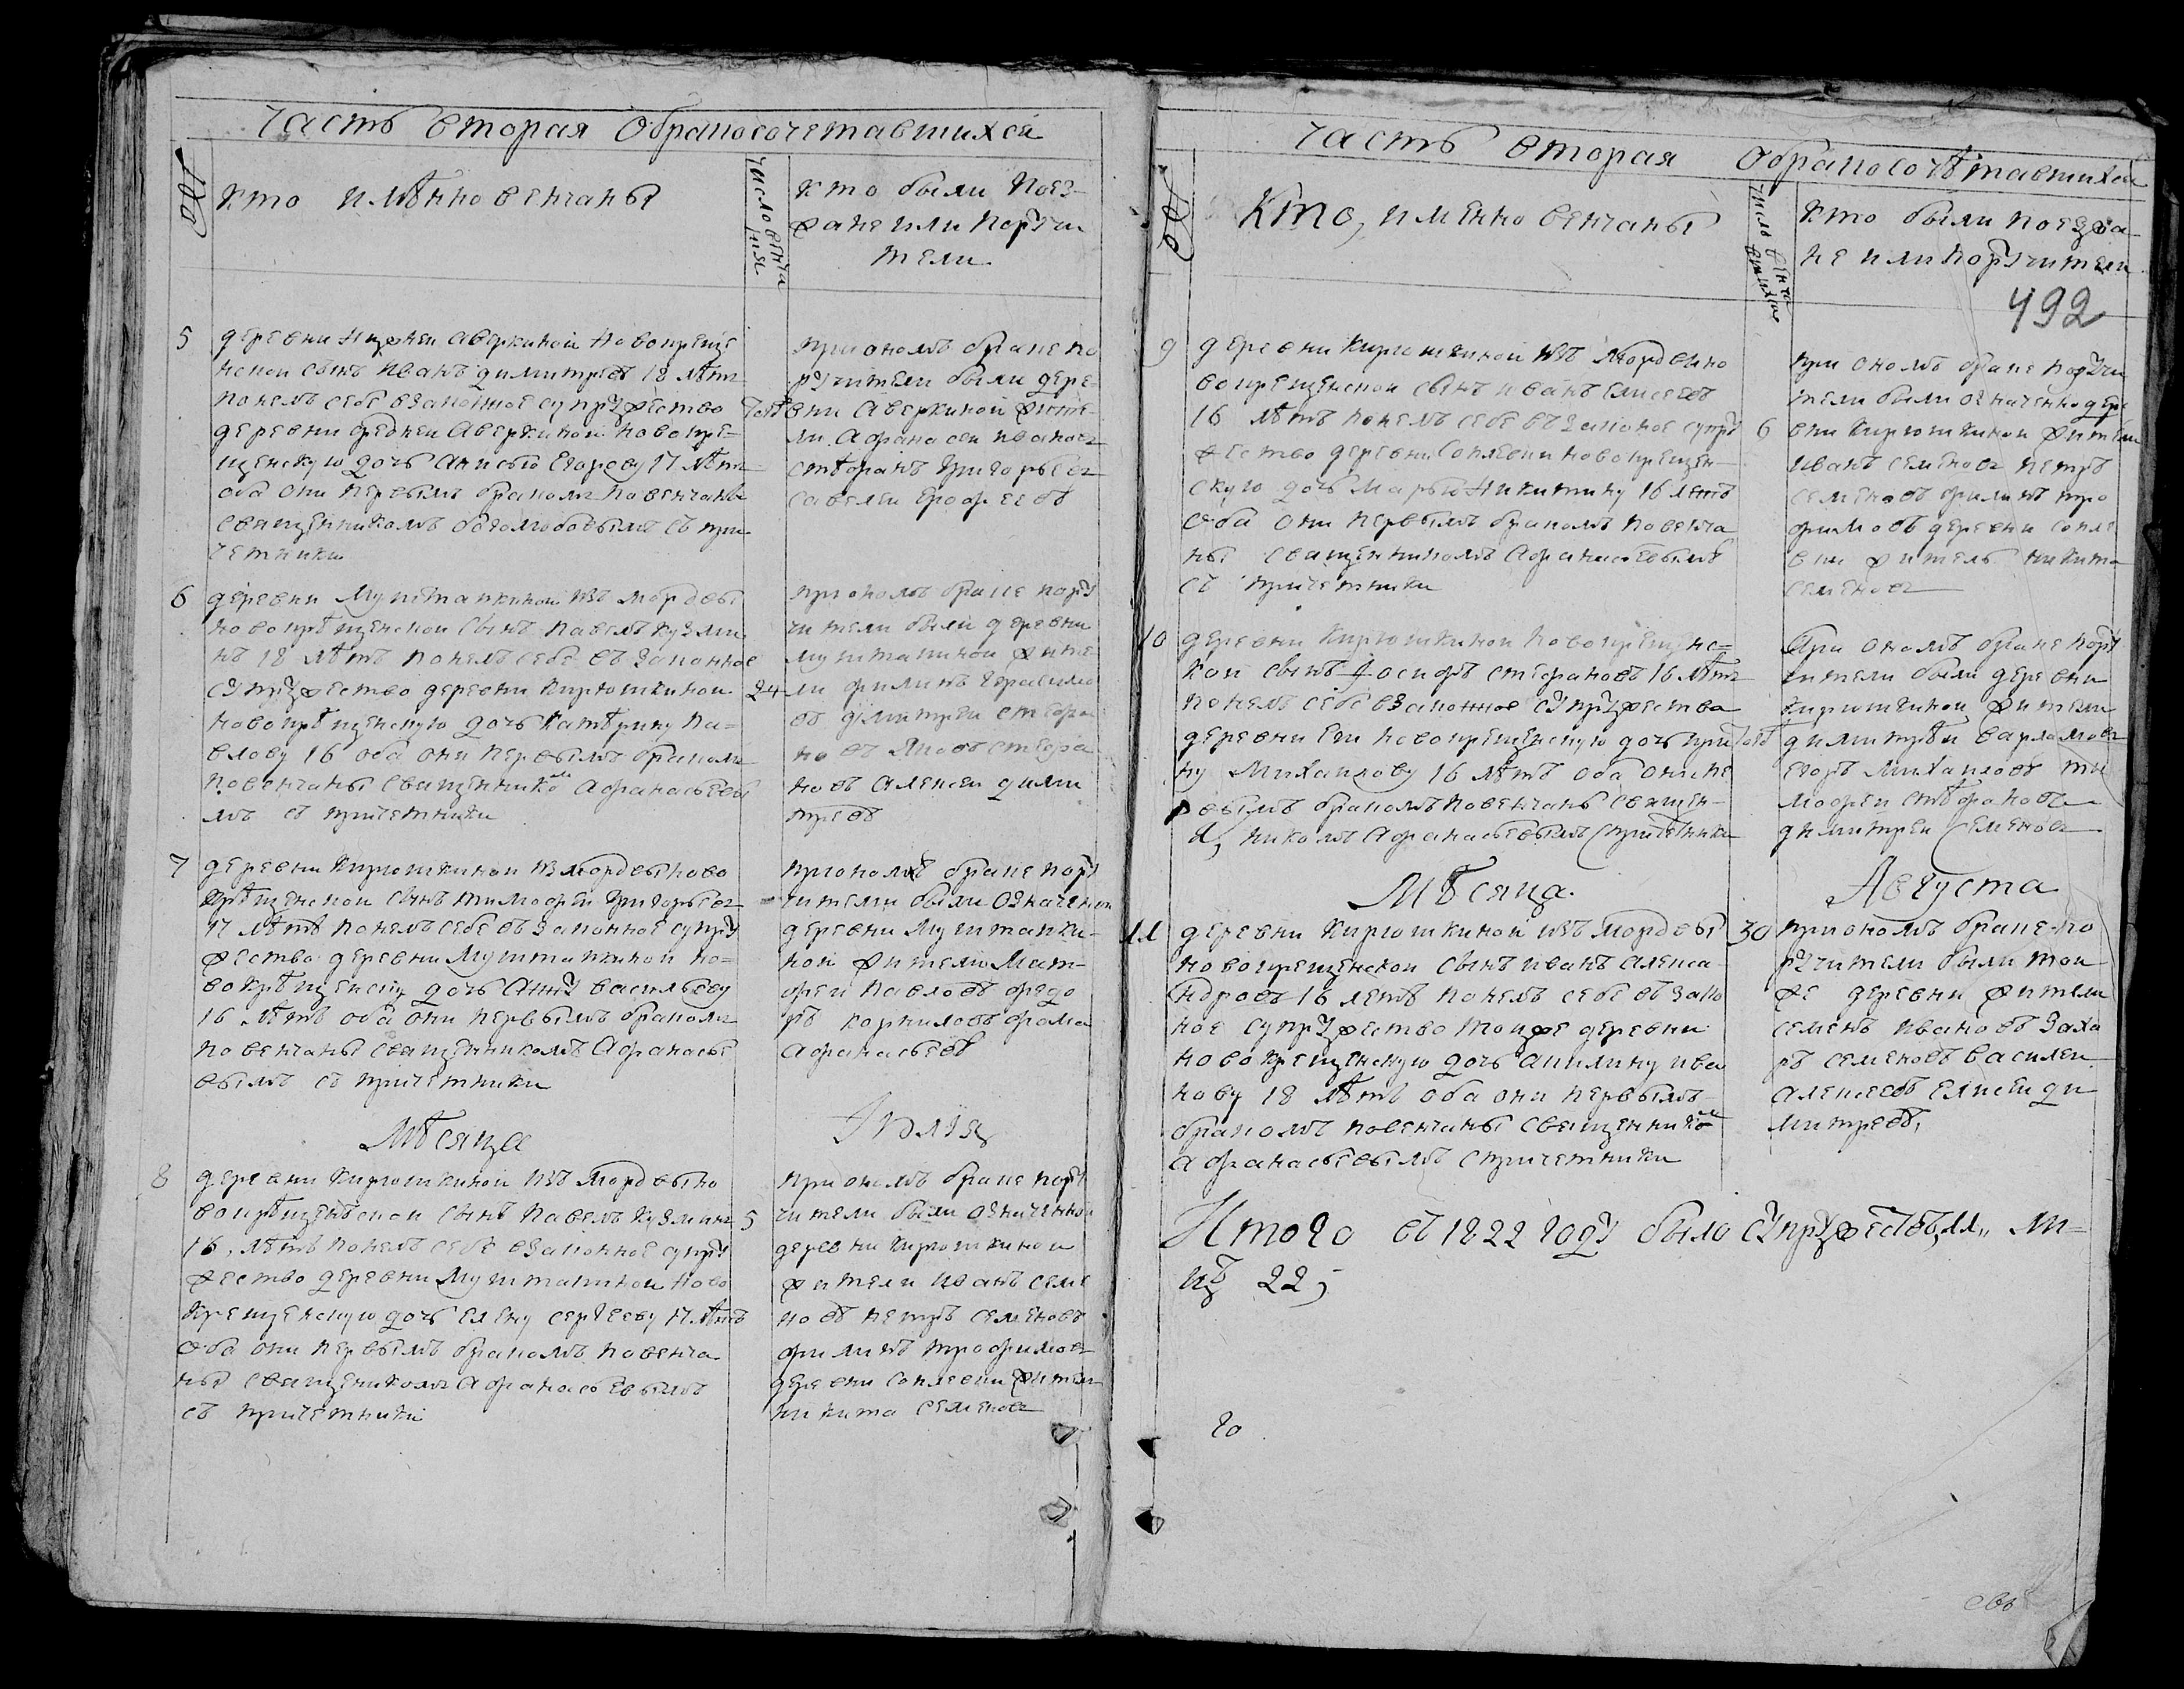 часть вторая обракосочетавшихся
№
кто имѣнно венчаны
число венча
ния
кто были поез-
жане или поручи
тели
5
деревни Нижней аверкиной новокреще
нскои сынъ иванъ димитревъ 18 лѣтъ
понелъ себе взаконное супружество
деревни средней Аверкиной новокре-
щенскую дочь Анисью Егорову 17 лѣтъ
оба они первымъ бракомъ повенчаны
священникомъ боголюбовымъ съ при
четники
тогожъ
приономъ браке по
ручители были дере-
вни Аверкиной жите-
ли Афанасеи ивановъ
стѣфанъ григорьевъ
савелеи ерофеевъ
6
деревни Мунтапкиной изъ мордвы
новокрѣщенской сынъ павелъ кузми
нъ 18 лѣтъ понелъ себе въ законное
супружество деревни кирюшкинои
новокрѣщенскую дочь катѣрину па-
влову 16 оба они первымъ бракомъ
повенчаны священникомъ афанасьевы
мъ съ причетники
24
приономъ браке пору
чители были деревни
мунтапкиной жите-
ли филипъ герасимо
въ димитреи стефа
новъ яковъ стефа
новъ алексеи дими
тревъ
7
деревни кирюшкинои изъ мордвы ново
крѣщенскои сынъ тимофеи григорьевъ
17 лѣтъ понелъ себе въ законное супру
жество деревни Мунтапкинои но-
вокрѣщенску дочь Анну васильеву
16 лѣтъ оба они первымъ бракомъ
повенчаны священникомъ Афанасье
вымъ съ причетники
приономъ браке пору
чители были означенои
деревни Мунтапки-
ной жители Мат-
феи павловъ федо
ръ корниловъ фома
афанасьевъ
Мѣсяца
Іюлія
8
деревни кирюшкиной изъ Мордвы но
вокрѣщенскои сынъ павелъ кузминъ
16, лѣтъ понелъ себе взаконное супру
жество деревни Мунтапкинои ново
крещенскую дочь елену сергееву 17 лѣтъ
оба они первымъ бракомъ повенча
ны священикомъ афанасьевымъ
съ причетники
5
приономъ браке пору
чители были означеннои
деревни кирюшкинои
жители иванъ семе
новъ петръ семеновъ
филипъ трофимовъ
деревни соплевки житель
никита семеновъ
часть вторая обракосочѣтавшихся
№
Кто, именно венчаны
число венча
кто были поезжа-
не или поручители
492
9
деревни кирюшкиной изъ Мордвы но
вокрещенскои сынъ иванъ елисеевъ
16 лѣтъ понелъ себе въ законое супру
жество деревни соплевки новокрещен-
скую дочь марью никитину 16 летъ
оба они первымъ бракомъ повенча
ны священникомъ афанасьевымъ
съ причетники
6
при ономъ браке поручи
тели были означенно дере
вни кирюшкинои жители
иванъ семеновъ петръ
семеновъ филипъ тро
фимовъ деревни сопле
вки житель никита
семеновъ
10
деревни кирюшкинои новокрещенс-
кои сынъ Iосифъ стефановъ 16 лѣтъ
понелъ себе взаконное супружества
деревни еи новокрещенскую дочь ири
ну Михаилову 16 лѣтъ оба они пе
рвымъ бракомъ повенчаны священ-
никомъ Афанасьевымъ спричетники
тогожъ
При ономъ браке пору
чители были деревни
кирюшкинои жители
димитреи варламовъ
егоръ Михаиловъ ти
мофеи стефановъ
димитреи семеновъ
Мѣсяца
Августа
11
деревни кирюшкиной изъ мордвы
новокрещенскои сынъ иванъ алекса
ндровъ 16 летъ понелъ себе въ зако
ное супружество тоиже деревни
новокрещенскую дочь акилину ива
нову 18 лѣтъ оба они первымъ
бракомъ повенчаны священникомъ
афанасьевымъ спричетники
30
приономъ браке по
ручители были тои
же деревни жители
семенъ ивановъ заха
ръ семеновъ василеи
алексеевъ елисеи ди
митревъ,
Итого въ 1822 году было супружествъ, 11,, ли-
цъ 22;
го